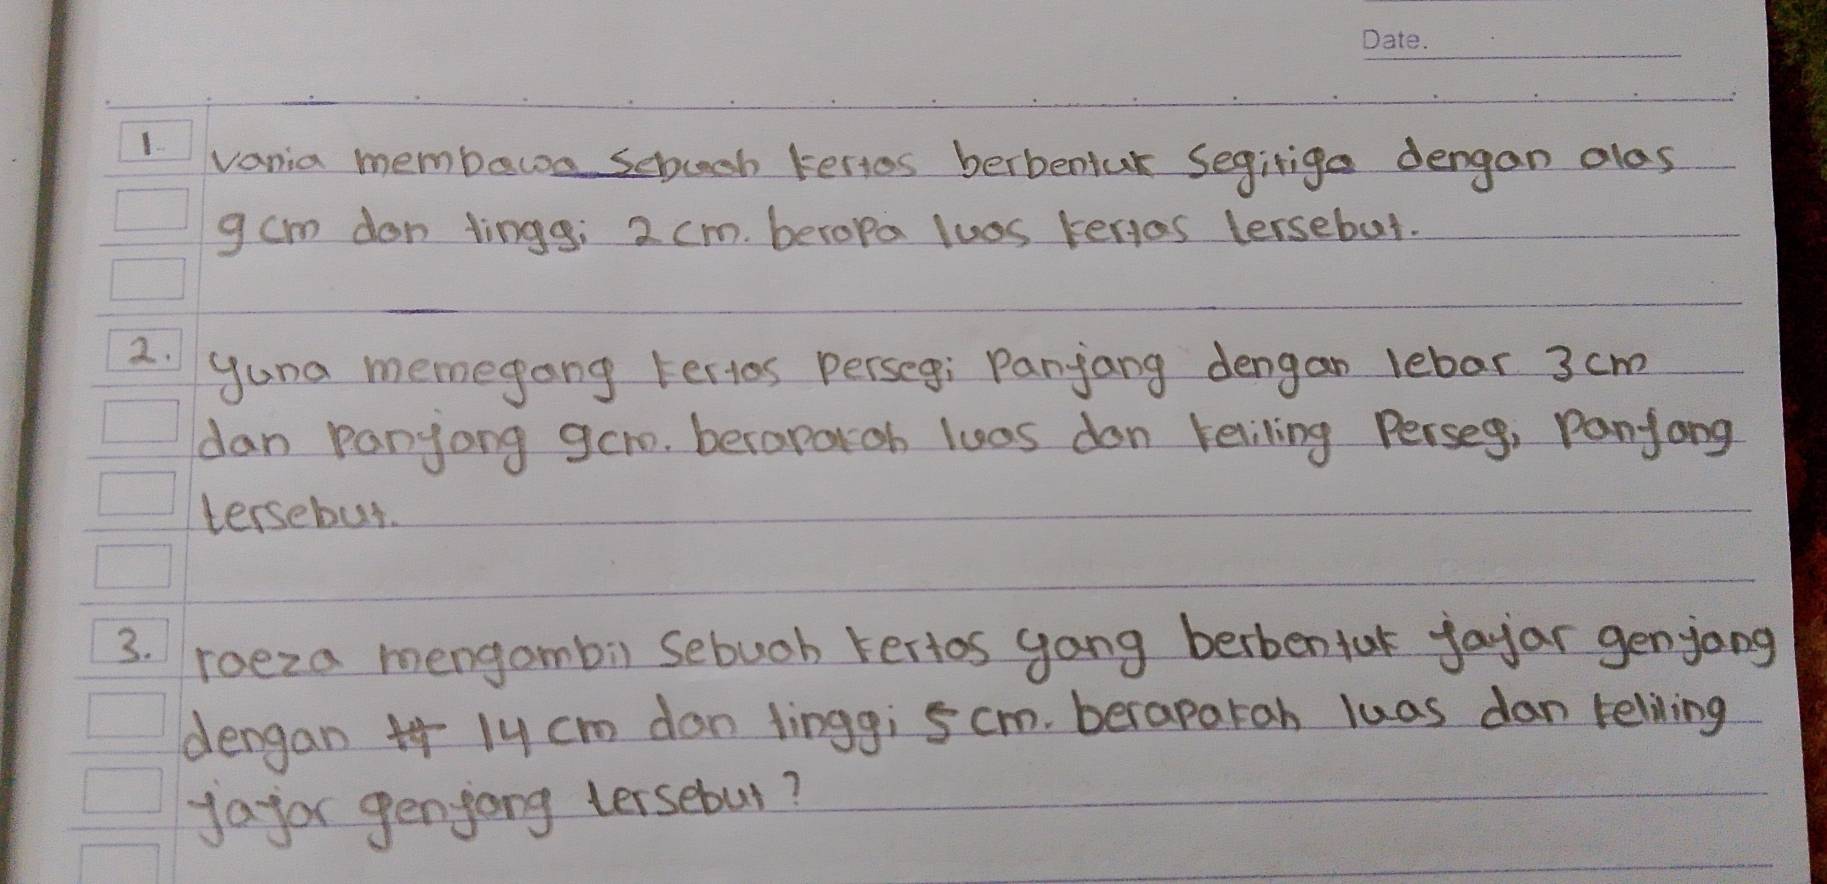 Date.
1. vania membawa sebuah kertas berbentuk segitiga dengan alas
9 cm dan tinggi 2 cm. berapa luas kertas tersebut.
2. yuna memegang kertas persegi panjang dengan lebar 3 cm
dan panjang 9 cm. berapakah luas dan keliling persegi panjang
tersebut.
3. raeza mengambil sebuah kertas yang berbentuk jajar genjang
dengan 14 cm dan tinggi 5 cm. berapakah luas dan keliling
jajar genjang tersebut?